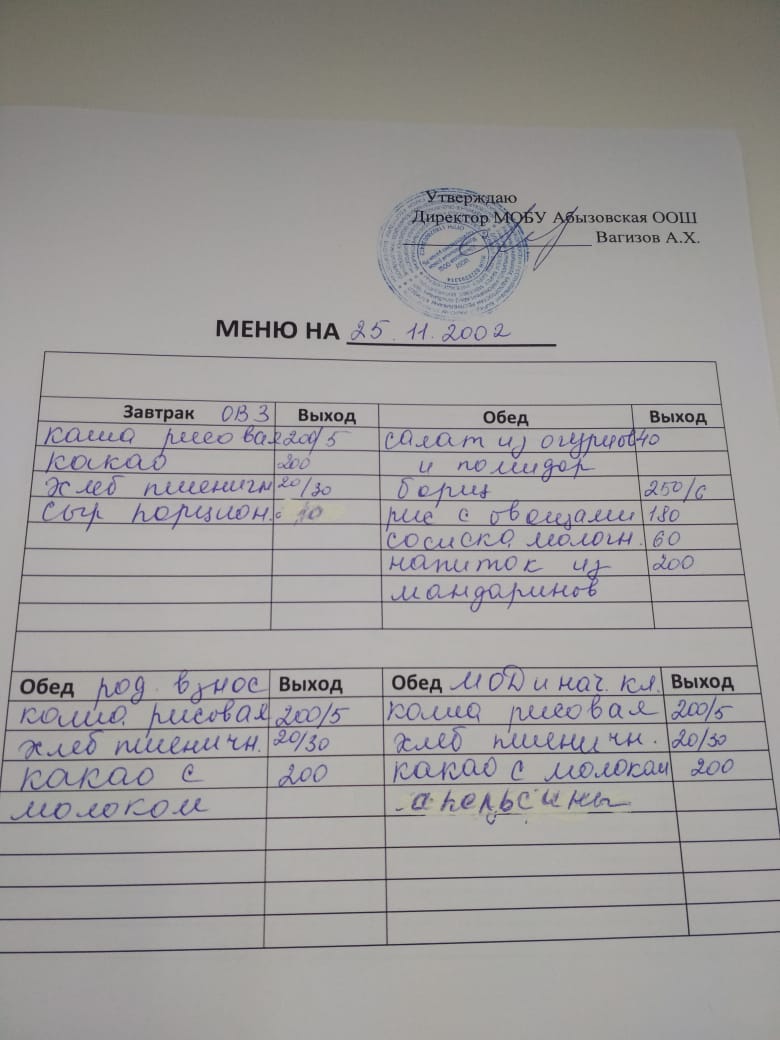 Утверждаю
Директор МОБУ Абызовская ООШ
Вагизов А.Х.
МЕНЮ НА 25.11.2002
Завтрак ОВЗ Выход Обед Выход
каша рисовая 200/5 салат из огурцов 40
какао 200 и помидор
хлеб пшеничн 20/30 борщ 250/6
сыр порцион. 10 рис с овощами 180
сосиска молочн. 60
напиток из 200
мандаринов
Обед род. взнос Выход Обед МОД и нач. кл. Выход
каша рисовая 200/5 каша рисовая 200/5
хлеб пшеничн. 20/30 хлеб пшеничн. 20/30
какао с 200 какао с молоком 200
молоком апельсины